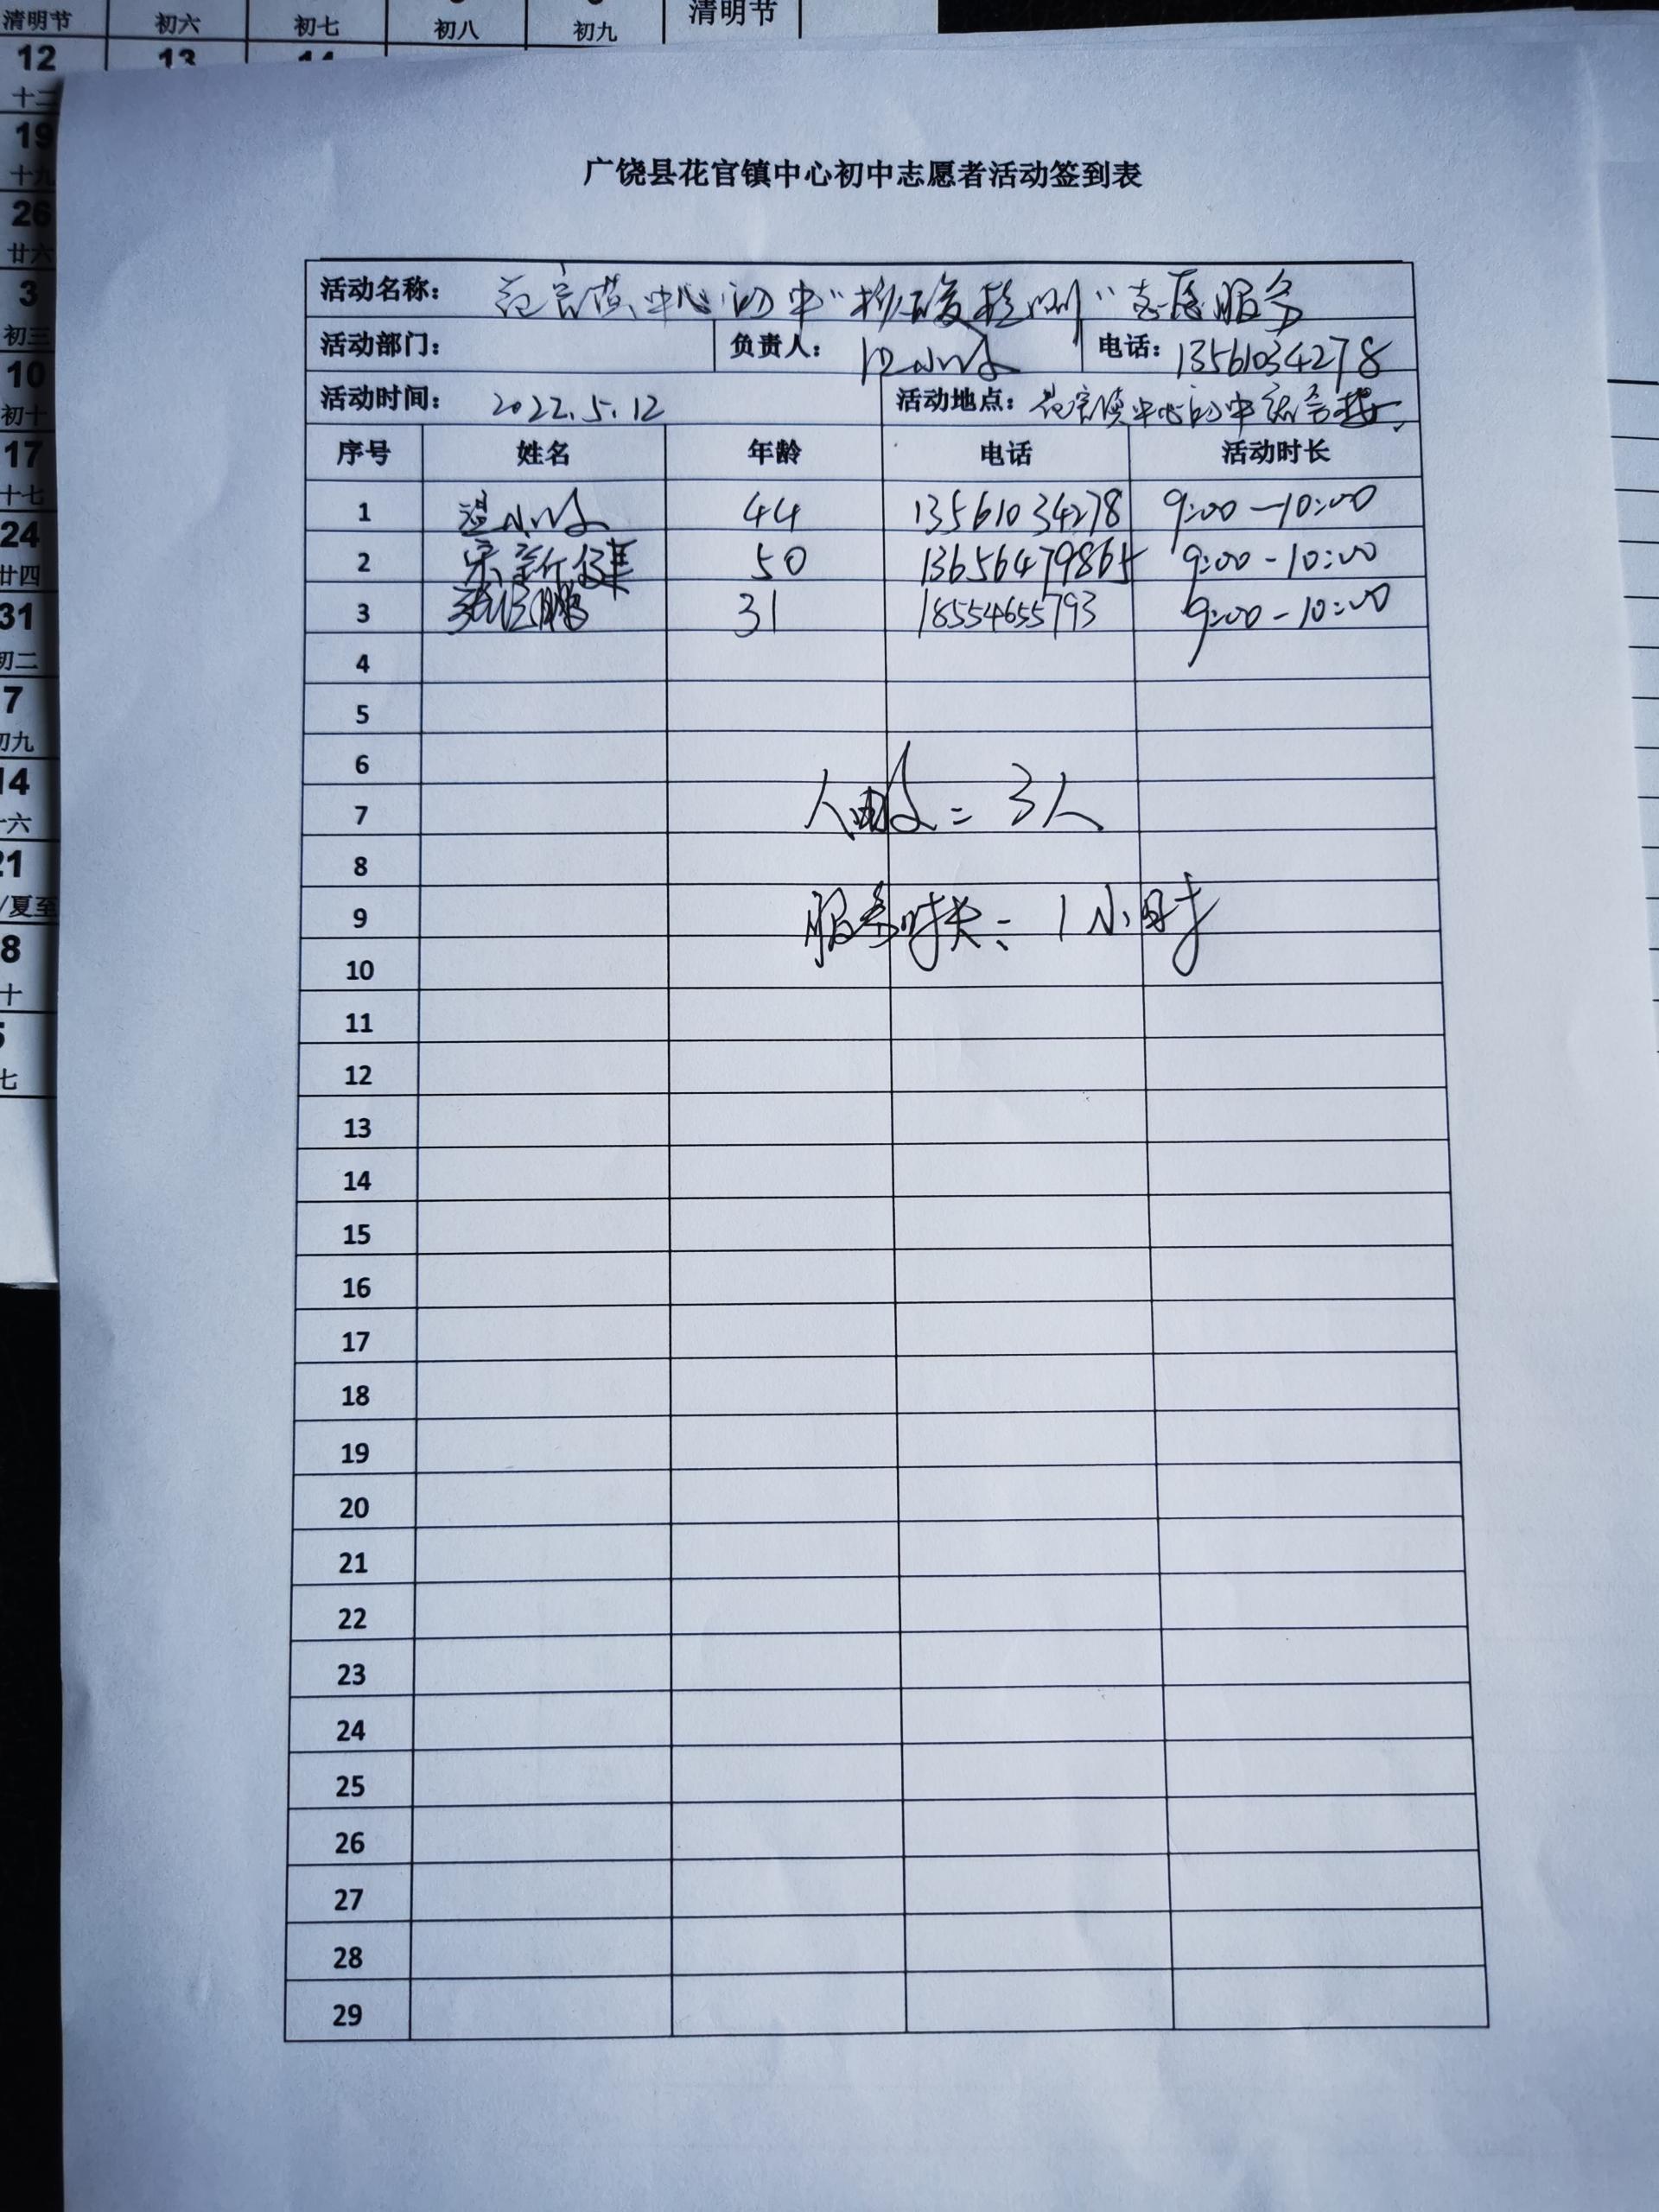 清明节 初六 初七 初八 初九 清明节
12 13 14
十二
19
十九
26
廿六
3
初三
10
初十
17
十七
24
廿四
31
初二
7
初九
14
十六
21
/夏至
8
十
5
七
广饶县花官镇中心初中志愿者活动签到表
活动名称： 花官镇中心初中“核酸检测”志愿服务
活动部门： 负责人： 电话： 13561034278
活动时间： 2022.5.12 活动地点： 花官镇中心初中综合楼
序号 姓名 年龄 电话 活动时长
1 温小 44 13561034278 9:00-10:00
2 宋新健 50 13656479865 9:00-10:00
3 31 18554655793 9:00-10:00
4
5
6
7 人数：3人
8
9 服务时长：1小时
10
11
12
13
14
15
16
17
18
19
20
21
22
23
24
25
26
27
28
29